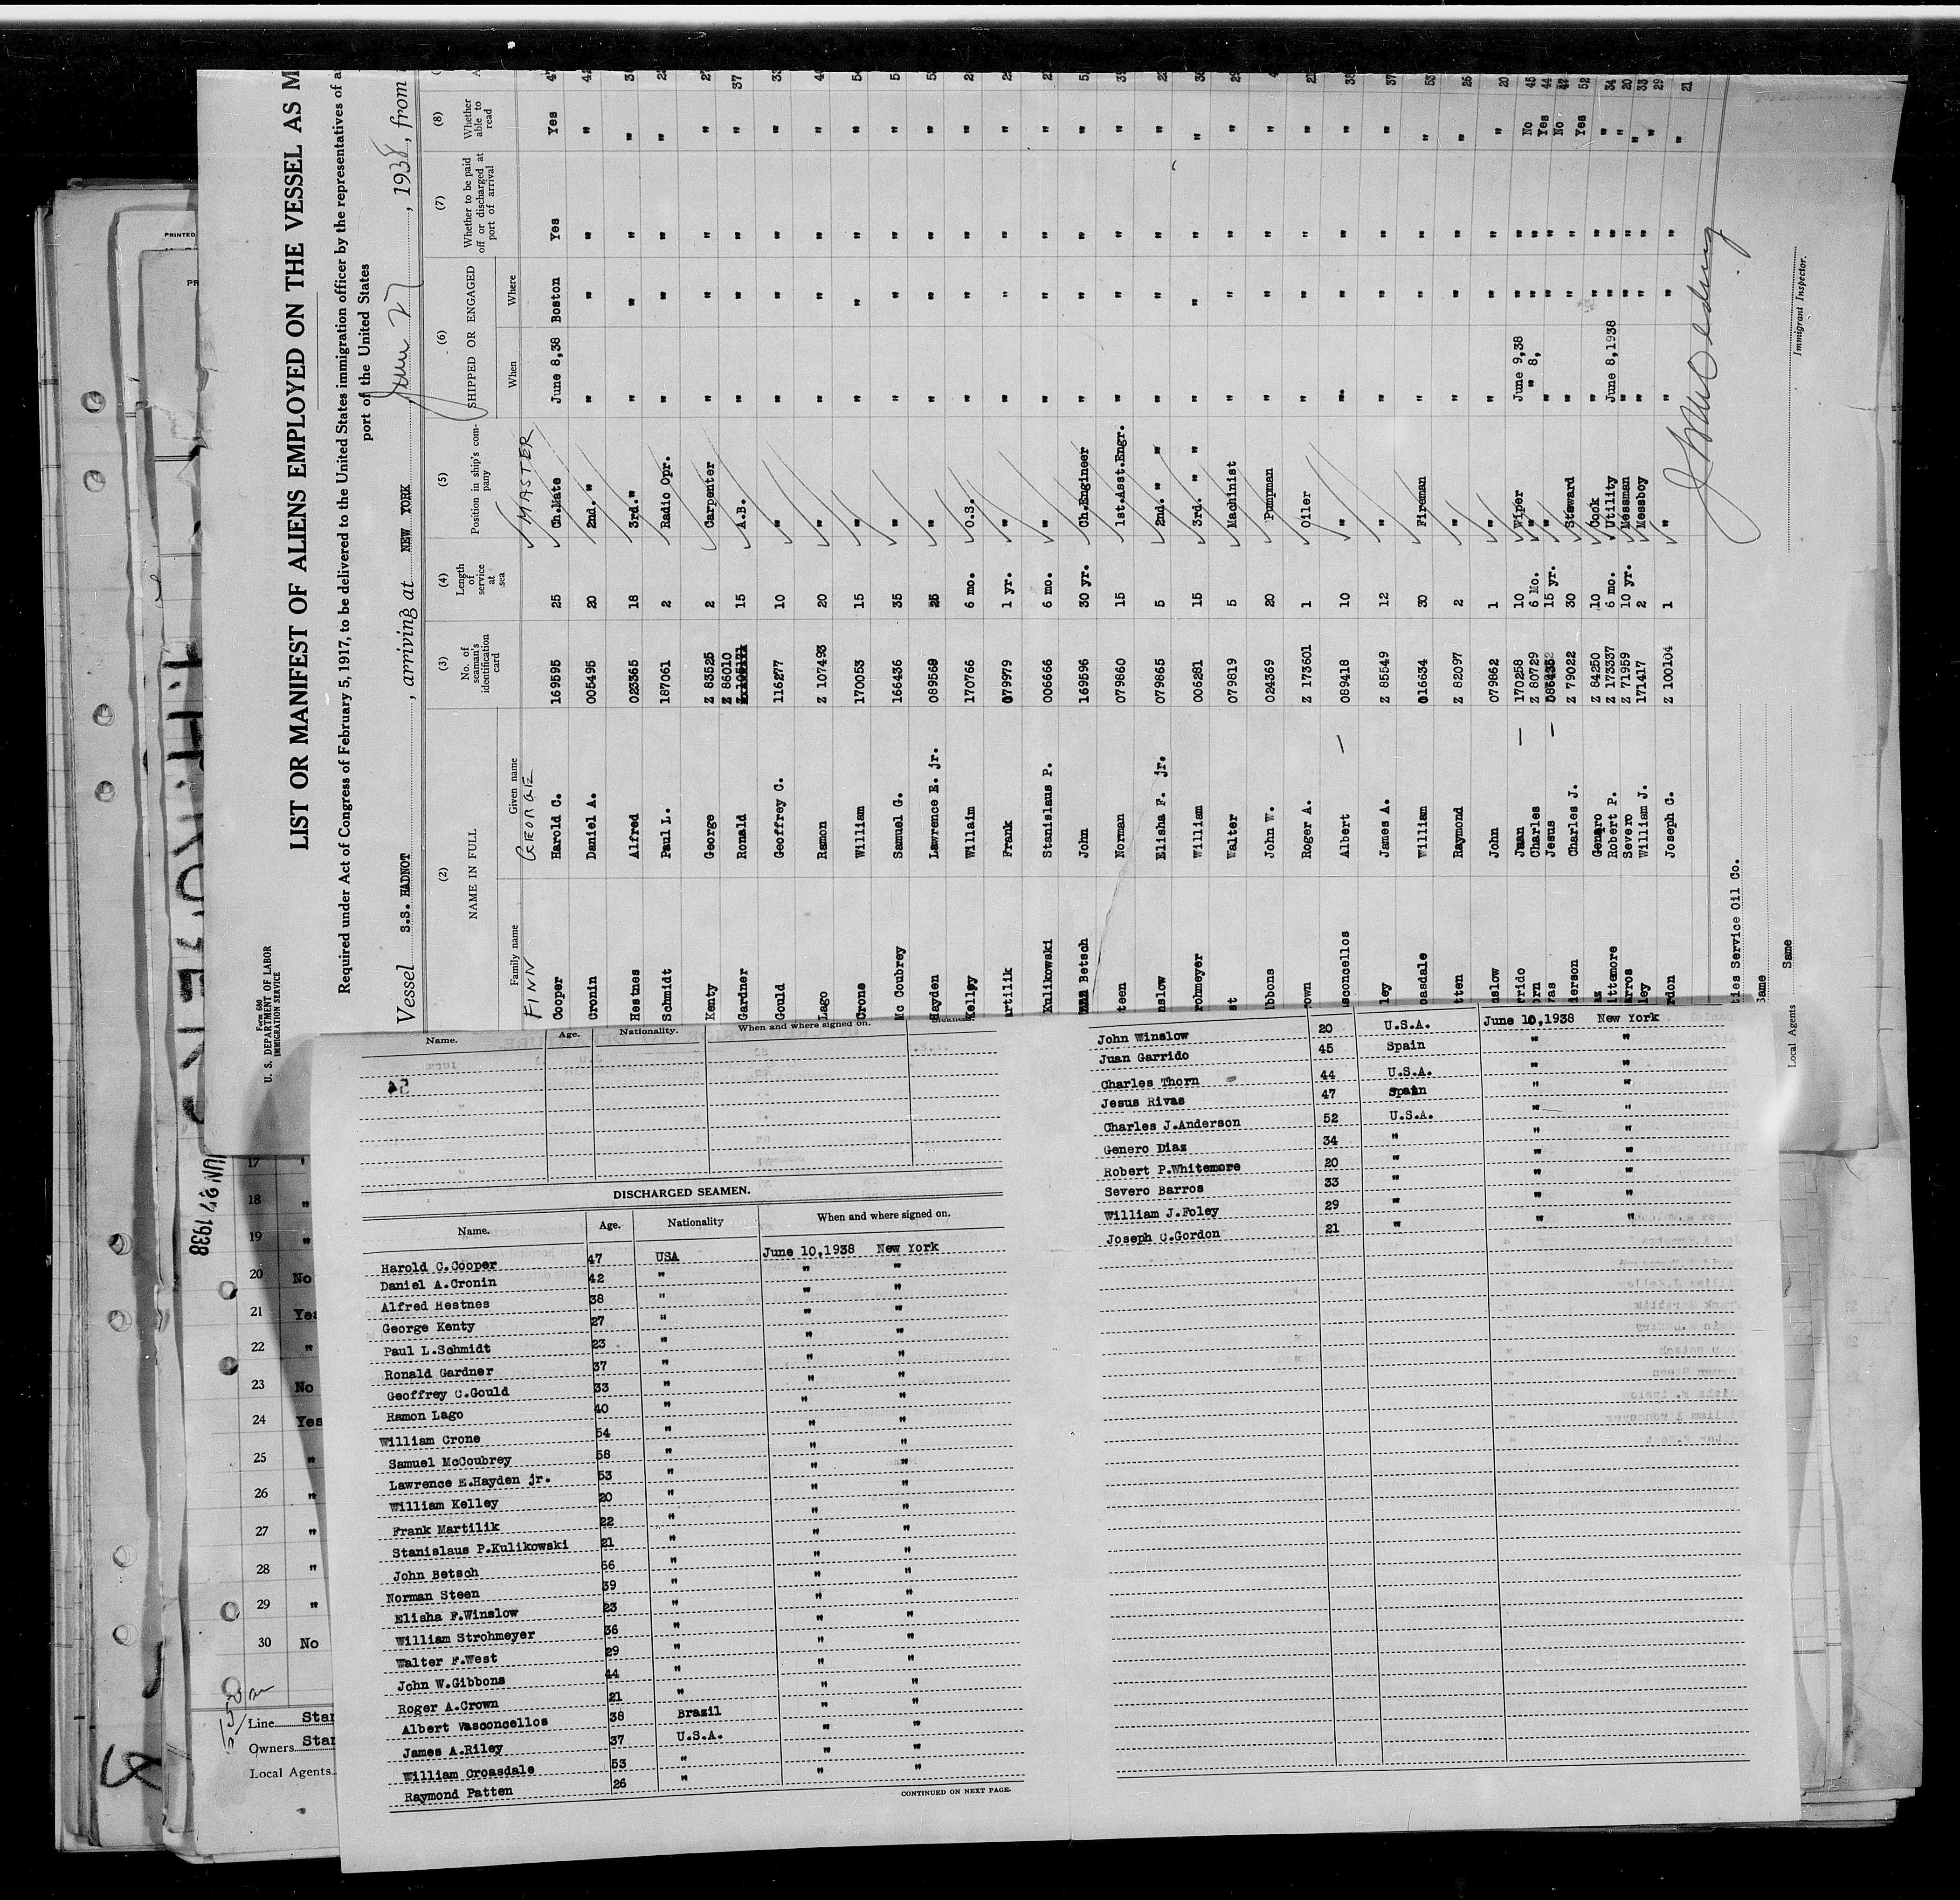 U. S. DEPARTMENT OF LABOR
IMMIGRATION SERVICE
LIST OR MANIFEST OF ALIENS EMPLOYED ON THE VESSEL AS M
Required under Act of Congress of February 5, 1917, to be delivered to the United States immigration officer by the representatives of a
port of the United States
Vessel S.S. HADNOT, arriving at NEW YORK June 27, 1938, from
(2) (3) (4) (5) (6) (7) (8)
NAME IN FULL No. of seaman's identification card Length of service at sea Position in ship's company SHIPPED OR ENGAGED Whether to be paid off or discharged at port of arrival Whether able to read
Family name Given name When Where
FINN GEORGE MASTER
Cooper Harold C. 169595 25 Ch.Mate June 8,38 Boston Yes Yes 47
Cronin Daniel A. 005495 20 2nd. " " " " " 42
Hestnes Alfred 023365 18 3rd." " " " "
Schmidt Paul L. 187061 2 Radio Opr. " " " "
Kenty George Z 83525 2 Carpenter " " " "
Gardner Ronald Z 86010 15 A.B. " " " " 37
Gould Geoffrey C. 116277 10 " " " " "
Lago Ramon Z 107493 20 " " " " "
Crone William 170053 15 " " " " "
Mc Coubrey Samuel G. 166436 35 " " " " "
Hayden Lawrence E. jr. 089569 25 " " " " "
Kelley Willaim 170766 6 mo. O.S. " " " "
artilik Frank 079979 1 yr. " " " " "
Kulikowski Stanislaus P. 006666 6 mo. " " " " "
Betsch John 169596 30 yr. Ch.Engineer " " " "
teen Norman 079860 15 1st.Asst.Engr. " " " "
nslow Elisha F. jr. 079865 5 2nd. " " " " " "
rohmeyer William 006281 15 3rd. " " " " " "
st Walter 079819 5 Machinist " " " "
ibbons John W. 024369 20 Pumpman " " " "
rown Roger A. Z 173601 1 Oiler " " " "
asconcellos Albert 089418 10 " " " " "
ley James A. Z 85549 12 " " " " "
oasdale William 016634 30 Fireman " " " "
tten Raymond Z 82097 2 " " " " "
nslow John 079862 1 " " " " " 20
rrido Juan 170258 10 Wiper June 9,38 " " No 45
orn Charles Z 80729 6 Mo. " " 8, " " Yes 44
vas Jesus 15 yr. " " " " No
ierson Charles J. Z 79022 30 Steward " " " Yes 52
az Genaro Z 84250 10 Cook " " " " 34
ittemore Robert P. Z 173337 6 mo. Utility June 8,1938 " " " 20
arros Severo Z 71959 10 yr. Messman " " " " 33
ley William J. 171417 2 Messboy " " " " 29
rdon Joseph C. Z 100104 1 " " " " " 21
ties Service Oil Co.
Same
Local Agents Same
Immigrant Inspector.
JUN 27 1938
17 "
18 "
19 "
20 No
21 Yes
22 "
23 No
24 Yes
25 "
26 "
27 "
28 "
29 "
30 No
Line Star
Owners Star
Local Agents
Name. Age. Nationality. When and where signed on.
DISCHARGED SEAMEN.
Name. Age. Nationality When and where signed on.
Harold C.Cooper 47 USA June 10,1938 New York
Daniel A.Cronin 42 " " "
Alfred Hestnes 38 " " "
George Kenty 27 " " "
Paul L.Schmidt 23 " " "
Ronald Gardner 37 " " "
Geoffrey C.Gould 33 " " "
Ramon Lago 40 " " "
William Crone 54 " " "
Samuel McCoubrey 58 " " "
Lawrence E.Hayden jr. 53 " " "
William Kelley 20 " " "
Frank Martilik 22 " " "
Stanislaus P.Kulikowski 21 " " "
John Betsch 56 " " "
Norman Steen 39 " " "
Elisha F.Winslow 23 " " "
William Strohmeyer 36 " " "
Walter F.West 29 " " "
John W.Gibbons 44 " " "
Roger A.Crown 21 " " "
Albert Vasconcellos 38 Brazil " "
James A.Riley 37 U.S.A. " "
William Croasdale 53 " " "
Raymond Patten 26 " " "
CONTINUED ON NEXT PAGE.
John Winslow 20 U.S.A. June 10,1938 New York
Juan Garrido 45 Spain " "
Charles Thorn 44 U.S.A. " "
Jesus Rivas 47 Spain " "
Charles J.Anderson 52 U.S.A. " "
Genero Diaz 34 " " "
Robert P.Whitemore 20 " " "
Severo Barros 33 " " "
William J.Foley 29 " " "
Joseph C.Gordon 21 " " "